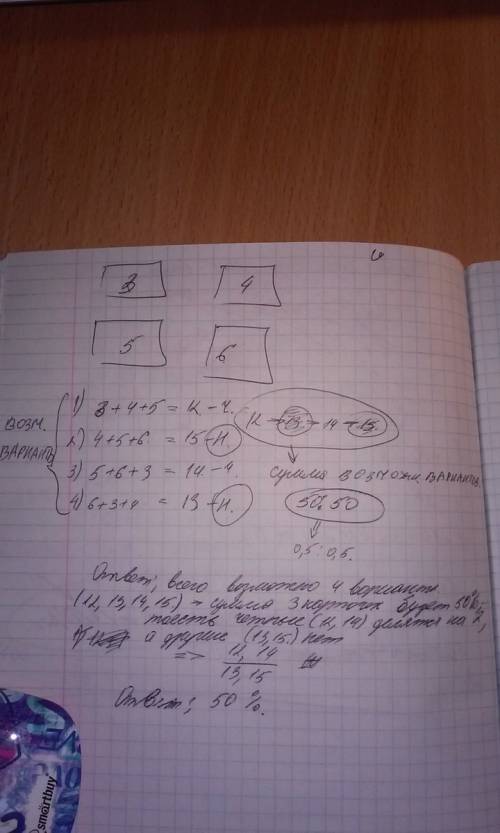 3 4
5 6
ВОЗМ. ВАРИАНТЫ
1) 3+4+5 = 12 - ч.
2) 4+5+6 = 15 - н.
3) 5+6+3 = 14 - ч.
4) 6+3+4 = 13 - н.
12 - 13 - 14 - 15
сумма ВОЗМОЖН. ВАРИАНТОВ.
50 : 50
0,5 : 0,5.
Ответ: всего возможно 4 варианта
(12, 13, 14, 15) - сумма 3 карточк будет 50%
тоесть четные (12, 14) делятся на 2,
а другие (13, 15) нет
=> 12, 14
13, 15
Ответ: 50 %.
smartbuy